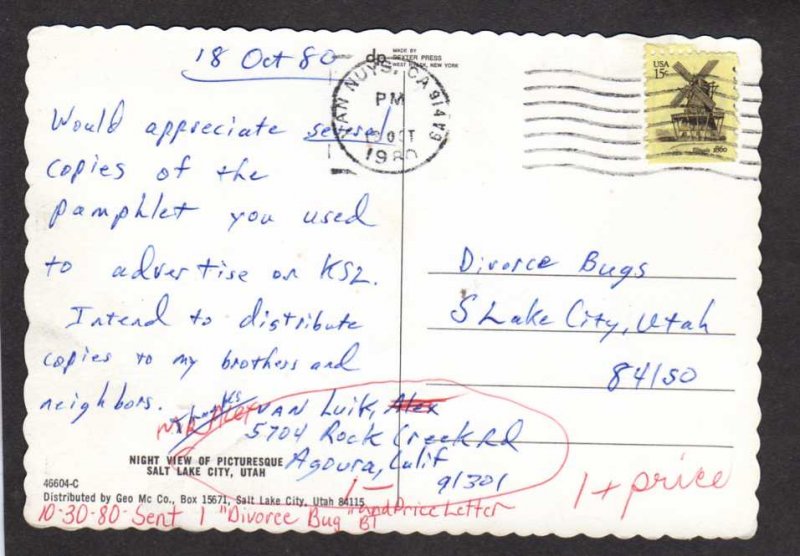 18 Oct 80
Would appreciate several
copies of the
pamphlet you used
to advertise on KSL.
Intend to distribute
copies to my brothers and
neighbors.
Thanks
VAN Luik, Alex
5704 Rock Creek Rd
Agoura, Calif
91301
NIGHT VIEW OF PICTURESQUE
SALT LAKE CITY, UTAH
46604-C
Distributed by Geo Mc Co., Box 15671, Salt Lake City, Utah 84115
10-30-80- Sent 1 "Divorce Bug" and Price Letter
BT
1-
dp
MADE BY
DEXTER PRESS
WEST NYACK, NEW YORK
VAN NUYS, CA 914
PM
OCT
1980
USA
15c
Illinois 1860
Divorce Bugs
S Lake City, Utah
84150
1 + price